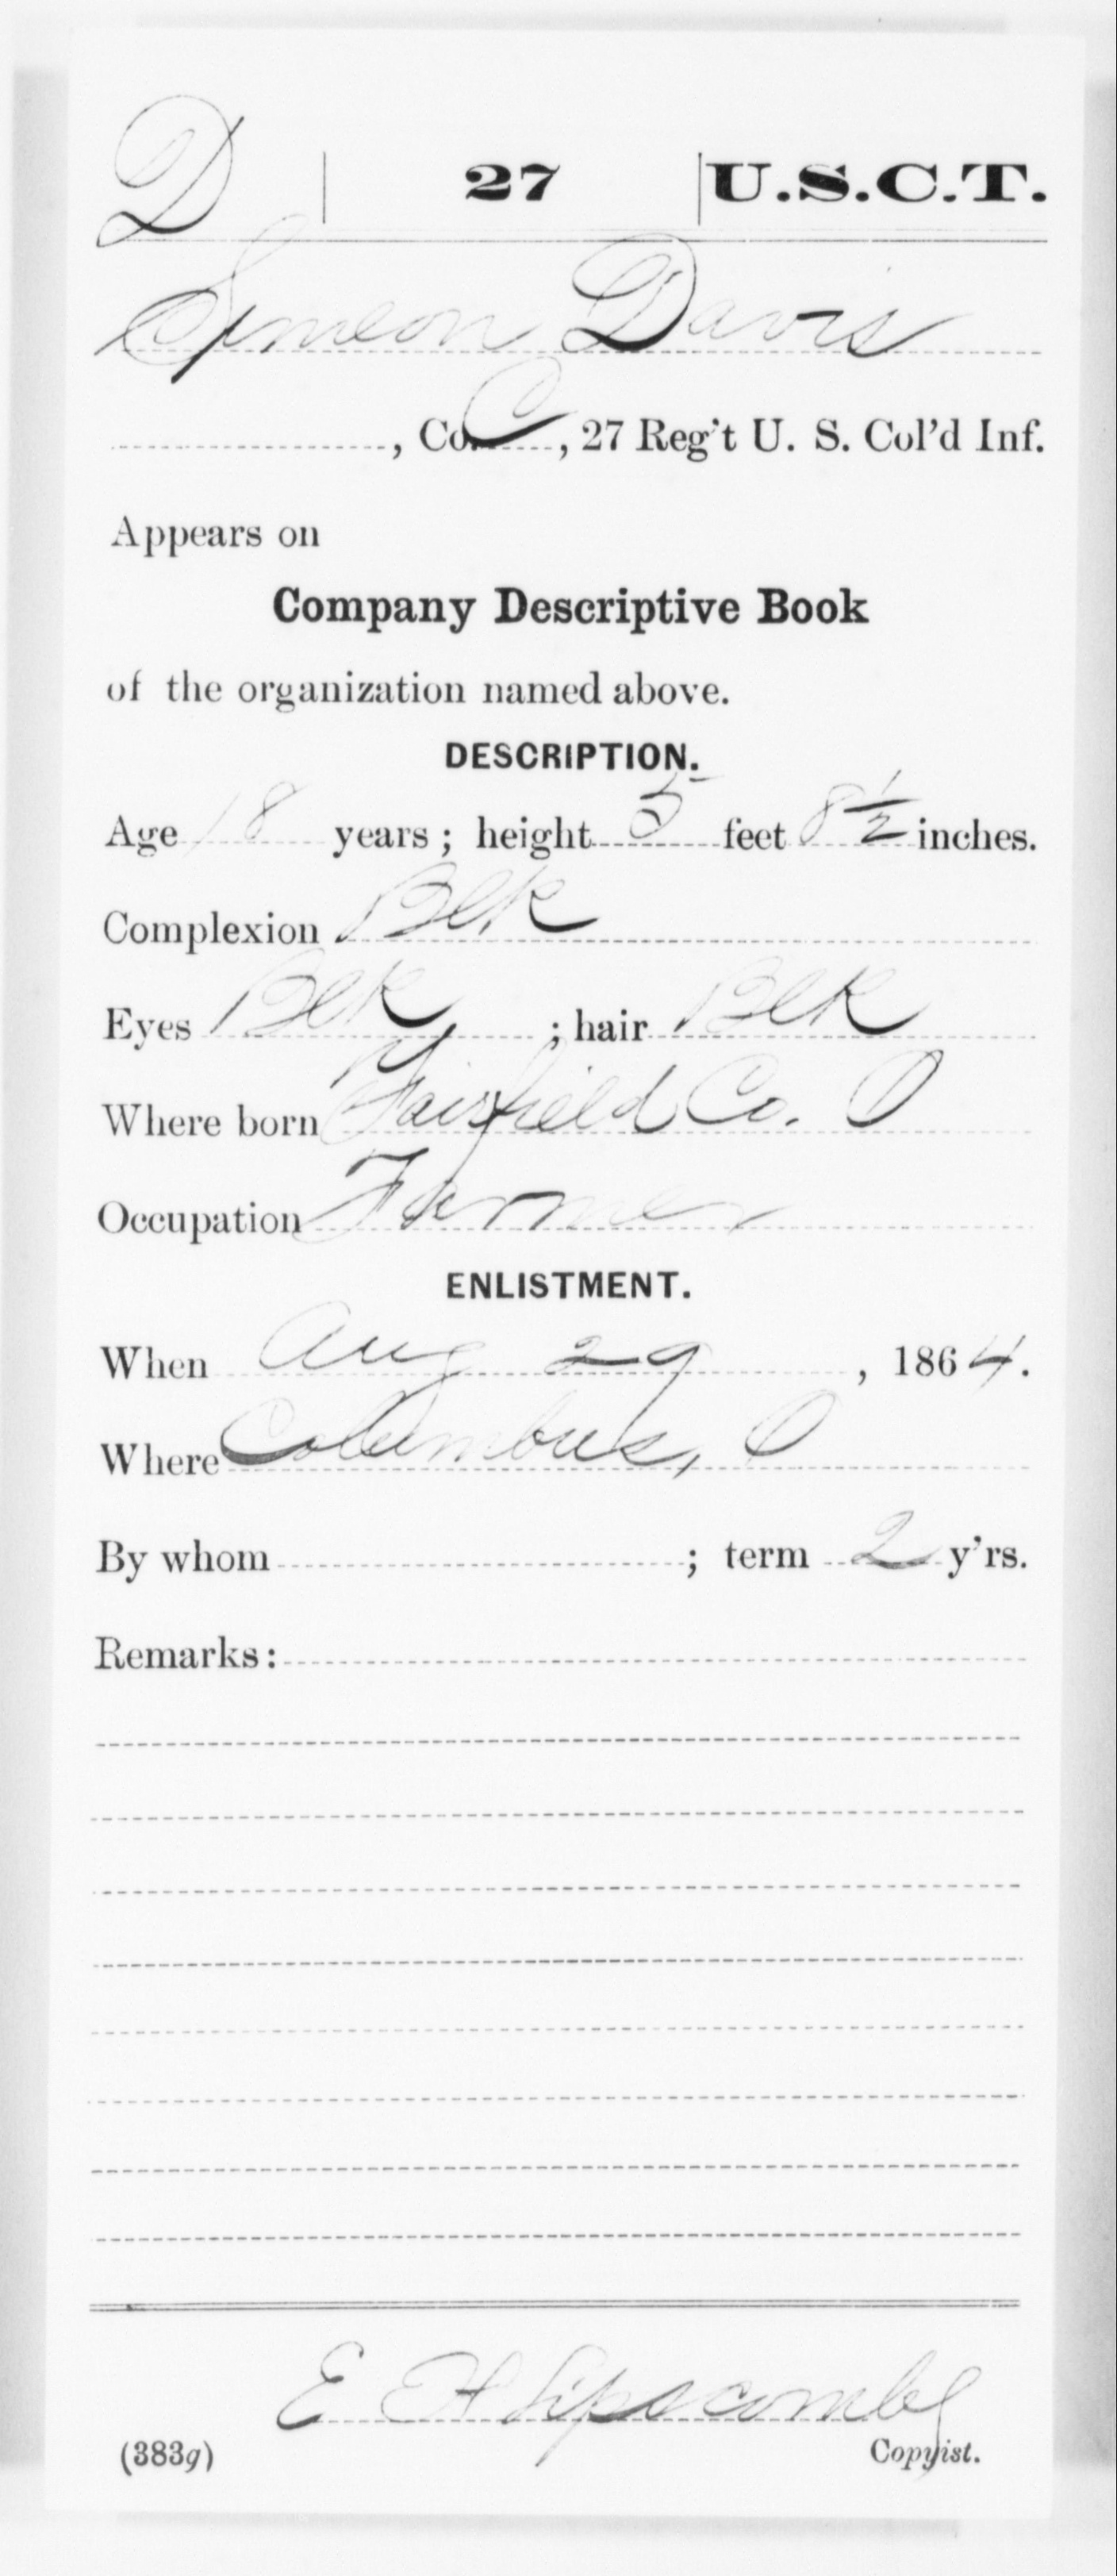 D | 27 | U.S.C.T.
Simeon Davis
, Co. C, 27 Reg't U. S. Col'd Inf.
Appears on
Company Descriptive Book
of the organization named above.
DESCRIPTION.
Age 18 years; height 5 feet 8 1/2 inches.
Complexion Blk
Eyes Blk ; hair Blk
Where born Fairfield Co. O
Occupation Farmer
ENLISTMENT.
When Aug 29, 1864.
Where Columbus, O
By whom ; term 2 y'rs.
Remarks:
E H Lipscomb
(383g) Copyist.